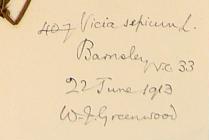 407 Vicia sepium L.
Barnsley v.c. 33
22 June 1913
W. J. Greenwood